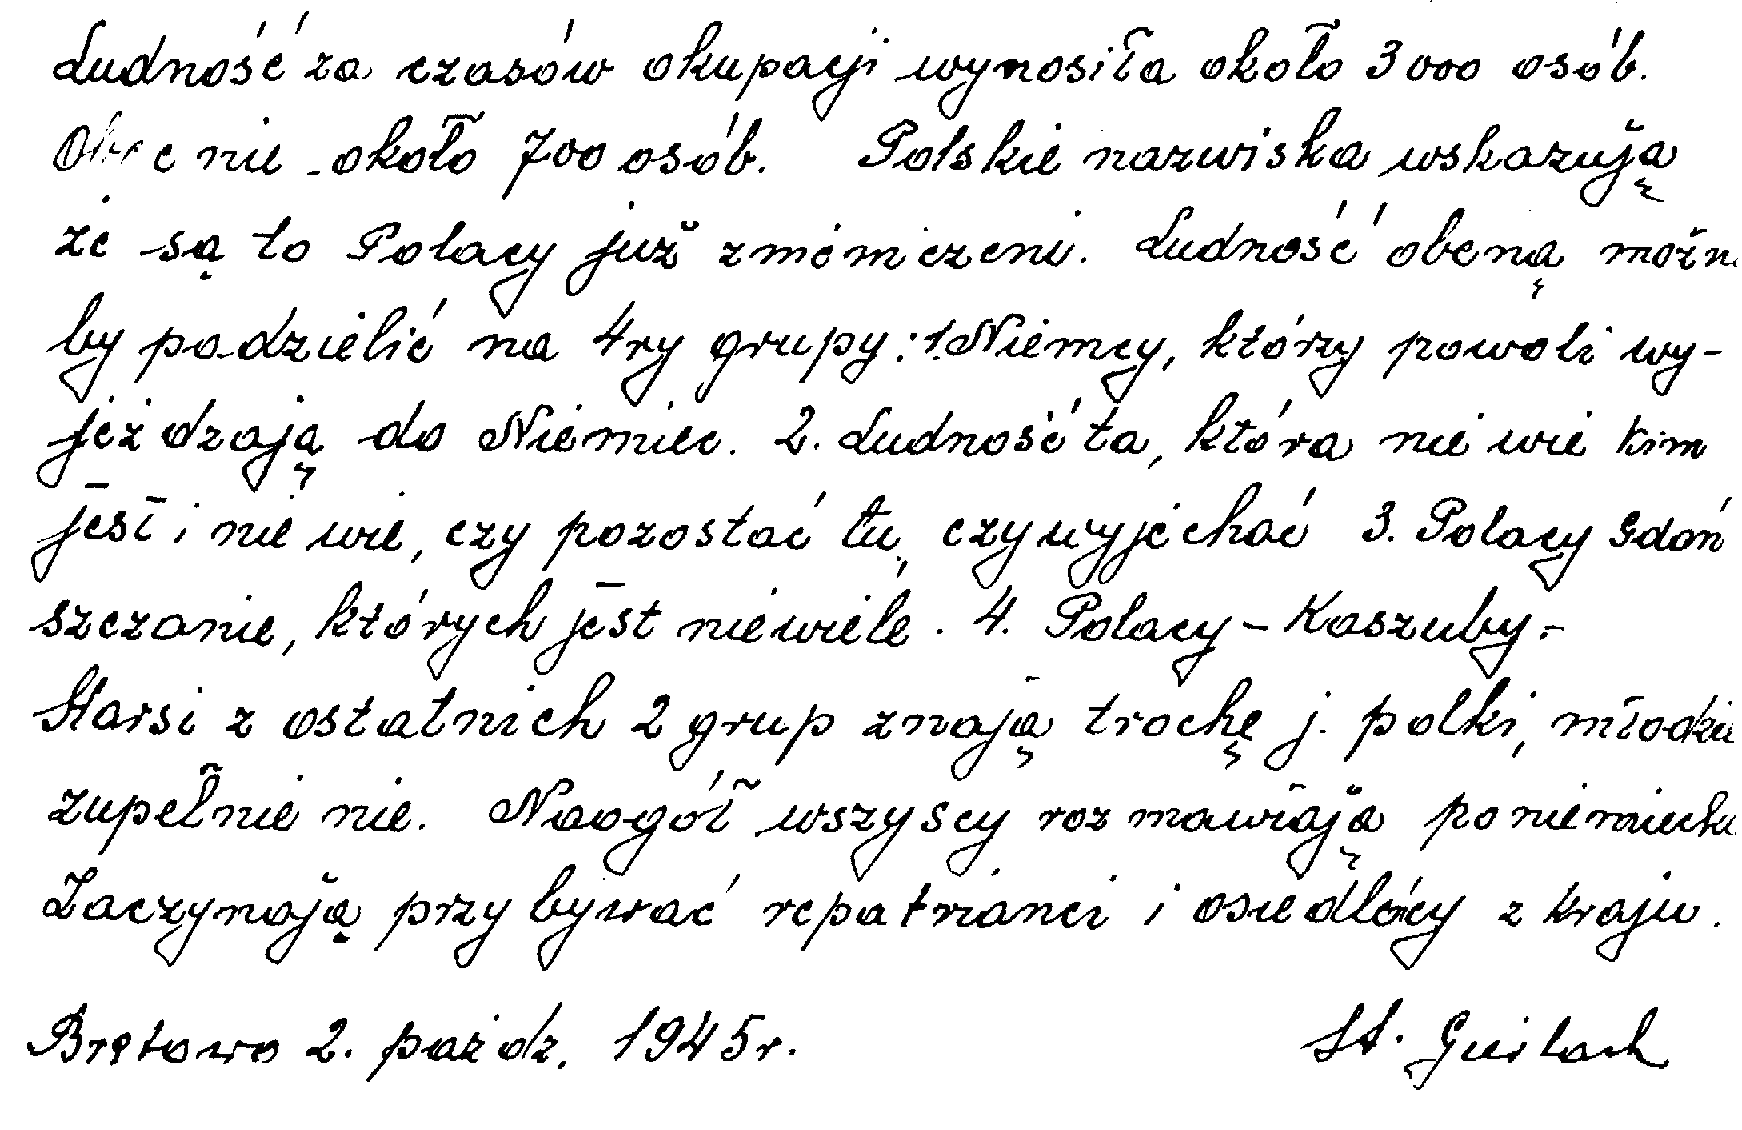 Ludność za czasów okupacji wynosiła około 3000 osób.
Obecnie około 700 osób. Polskie nazwiska wskazują
że są to Polacy już zmiemczeni. Ludność obcną można
by podzielić na 4ry grupy: 1. Niemcy, którzy powoli wy-
jeżdzają do Niemiec. 2. Ludność ta, która nie wie kim
jest i nie wie, czy pozostać tu, czy wyjechać 3. Polacy Gdań
szczanie, których jest niewiele. 4. Polacy - Kaszuby.-
Starsi z ostatnich 2 grup znają trochę j. polki, młodzie
zupełnie nie. Naogół wszyscy rozmawiają poniemiecku
Zaczynają przybywać repatrianci i osiedlńcy z kraju.
Brętowo 2. paźdz. 1945 r.
St. Gierlach